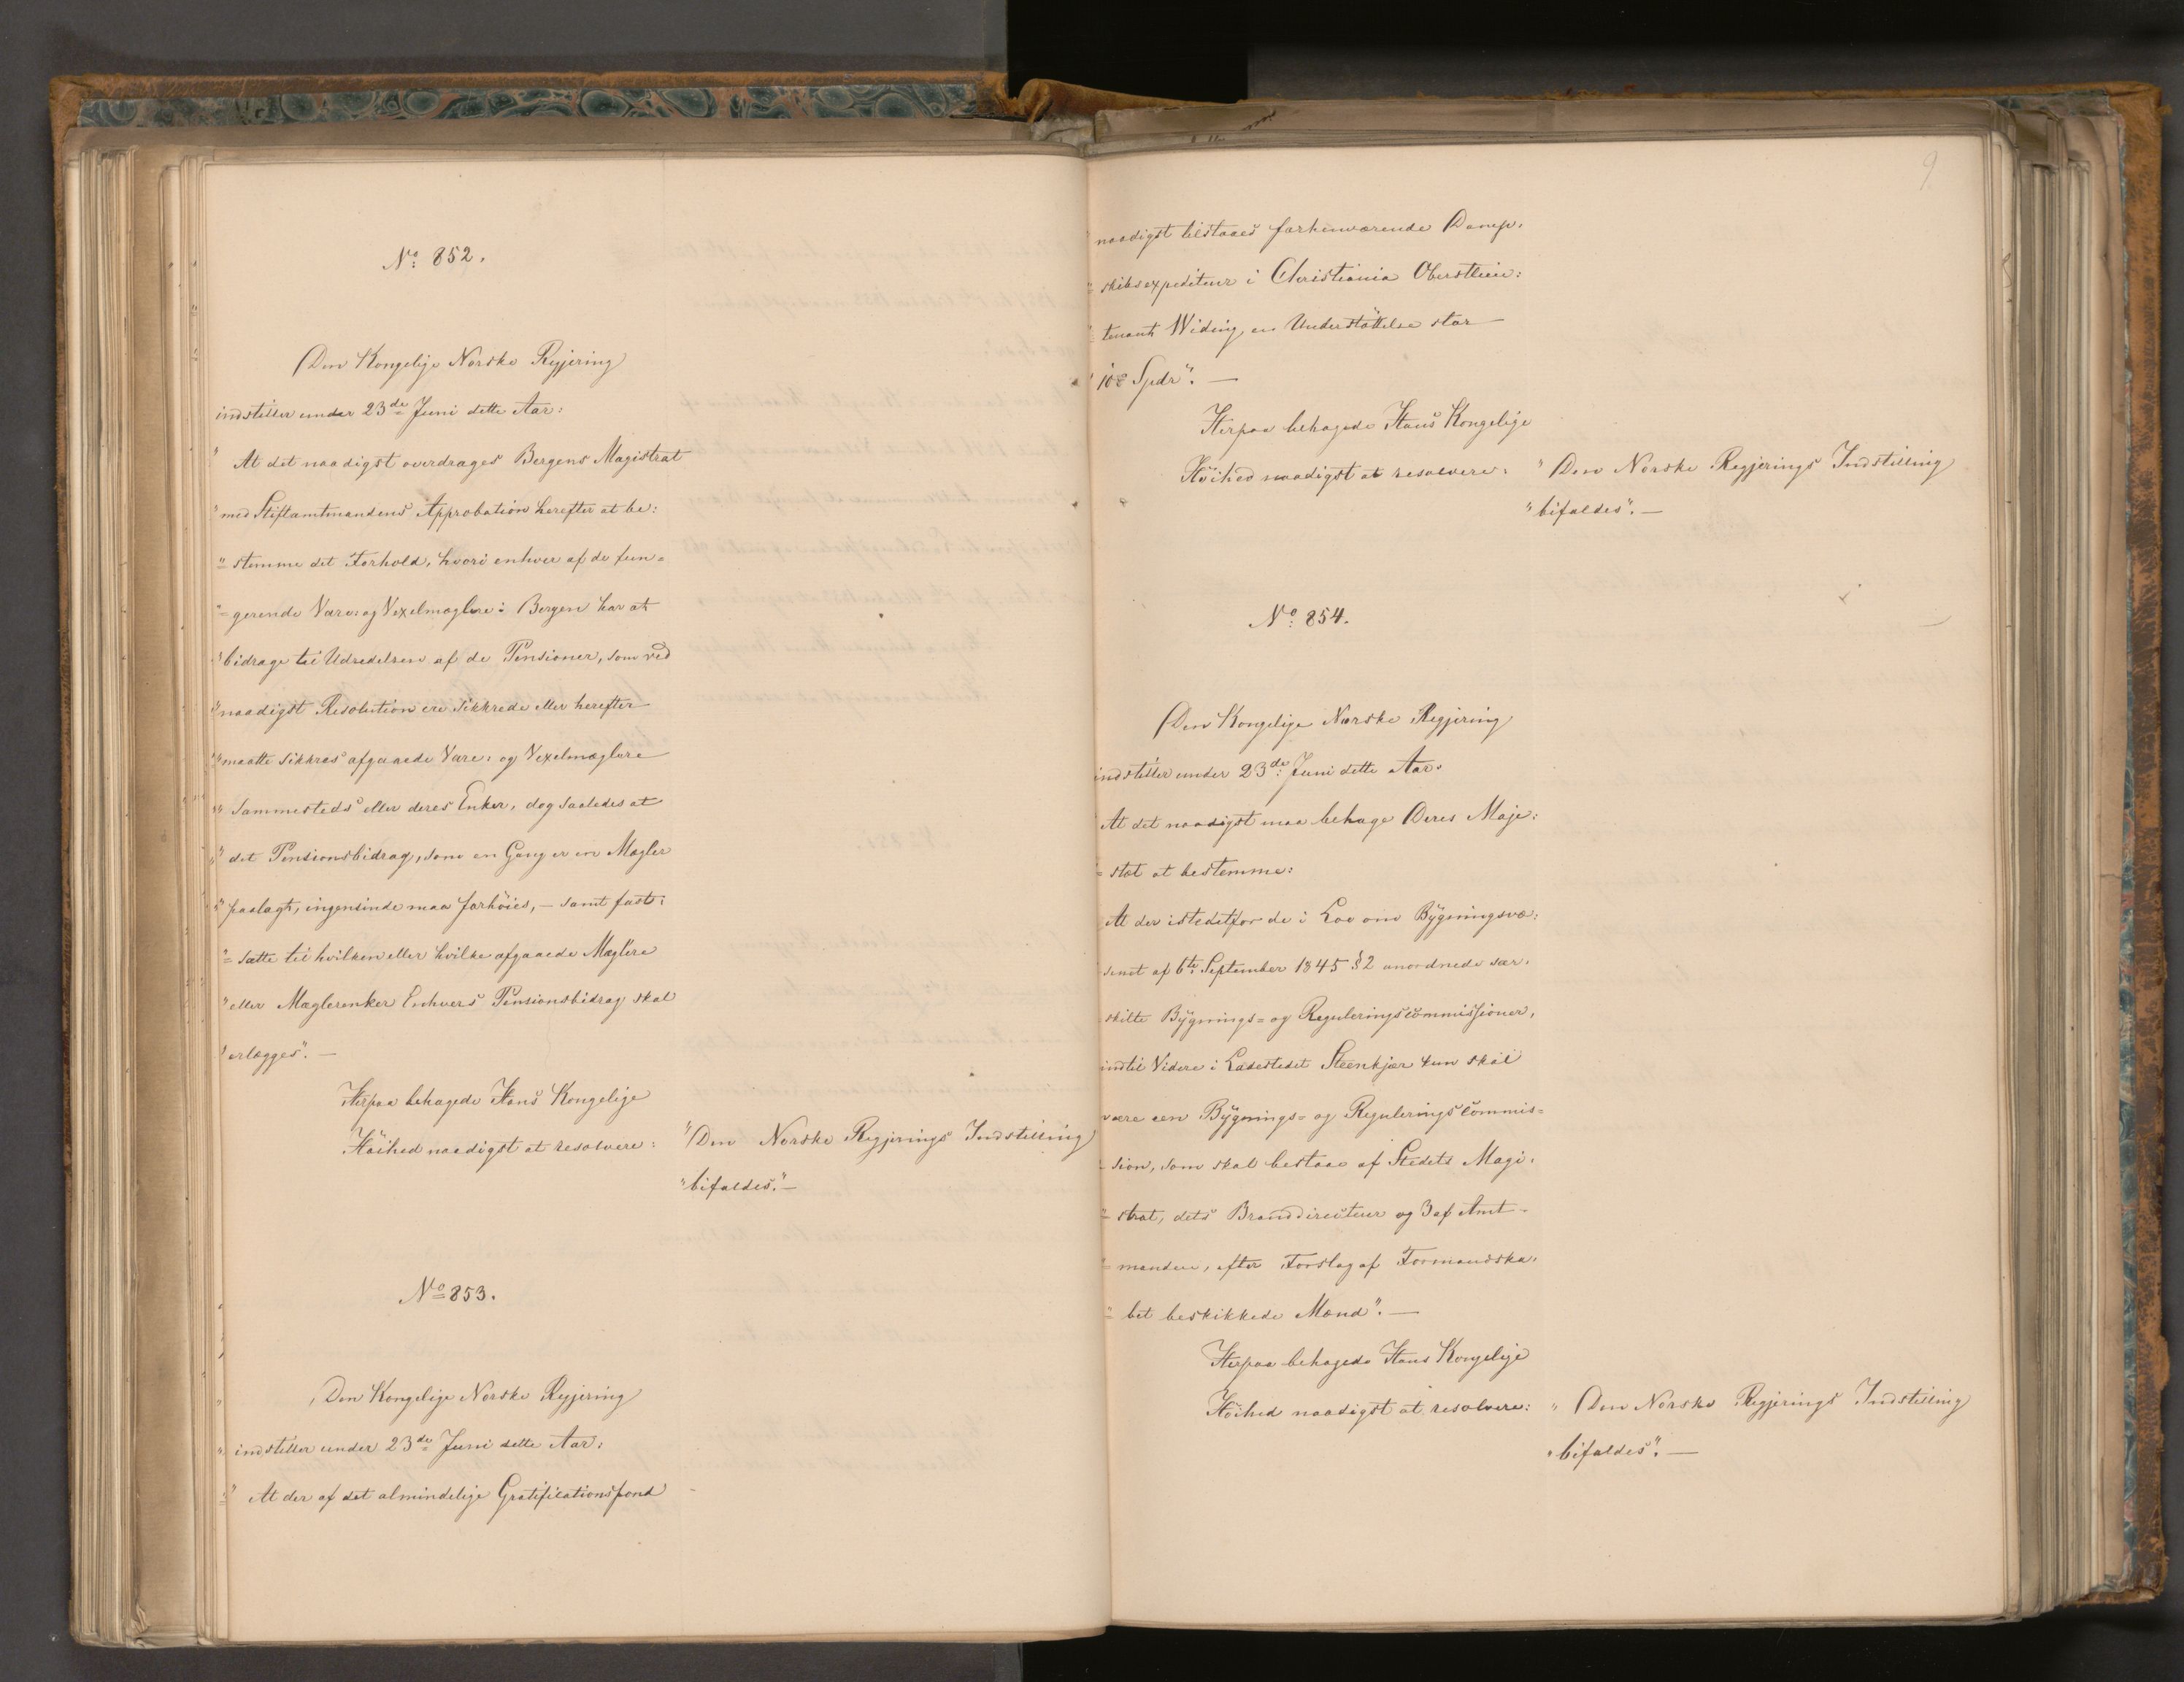 No: 852.
Den Kongelige Norske Regjering
indstiller under 23de Juni dette Aar:
" At det naadigst overdrages Bergens Magistrat
" med Stiftamtmandens Approbation herefter at be:
"= stemme det Forhold, hvori enhver af de fun=
"= gerende Vare: og Vexelmæglere i Bergen har at
" bidrage til Udredelsen af de Pensioner, som ved
" naadigst Resolution ere sikkrede eller herefter
" maatte sikkres afgaaede Vare: og Vexelmæglere
" sammesteds eller deres Enker, dog saaledes at
" det Pensionsbidrag, som en Gang er en Mægler
" paalagt, ingensinde maa forhöies, – samt fast:
"= sætte til hvilken eller hvilke afgaaede Mæglere
" eller Mæglerenker Enhvers Pensionsbidrag skal
" erlægges". –
Herpaa behagede Hans Kongelige
Höihed naadigst at resolvere: "Den Norske Regjerings Indstilling
"bifaldes." –
No 853.
Den Kongelige Norske Regjering
indstiller under 23de Juni dette Aar:
" At der af det almindelige Gratificationsfond
9
" naadigst tilstaaes forhenværende Damp:
"= skibsexpediteur i Christiania Oberstlieu:
"= tenant Widing en Understöttelse stor
" 100 Spdr". –
Herpaa behagede Hans Kongelige
Höihed naadigst at resolvere: "Den Norske Regjerings Indstilling
"bifaldes". –
No: 854.
Den Kongelige Norske Regjering
indstiller under 23de: Juni dette Aar:
At det naadigst maa behage Deres Maje:
= stæt at bestemme:
At der istedetfor de i Lov om Bygningsvæ:
senet af 6te September 1845 § 2 anordnede sær:
skilte Bygnings= og Reguleringscommissioner,
indtil Videre i Ladestedet Steenkjær kun skal
være een Bygnings= og Reguleringscommis=
sion, som skal bestaae af Stedets Magi:
"= strat, dets Branddirecteur og 3 af Amt=
"= manden, efter Forslag af Formandska:
"= bet beskikkede Mænd". –
Herpaa behagede Hans Kongelige
Höihed naadigst at resolvere: "Den Norske Regjerings Indstilling
"bifaldes". –